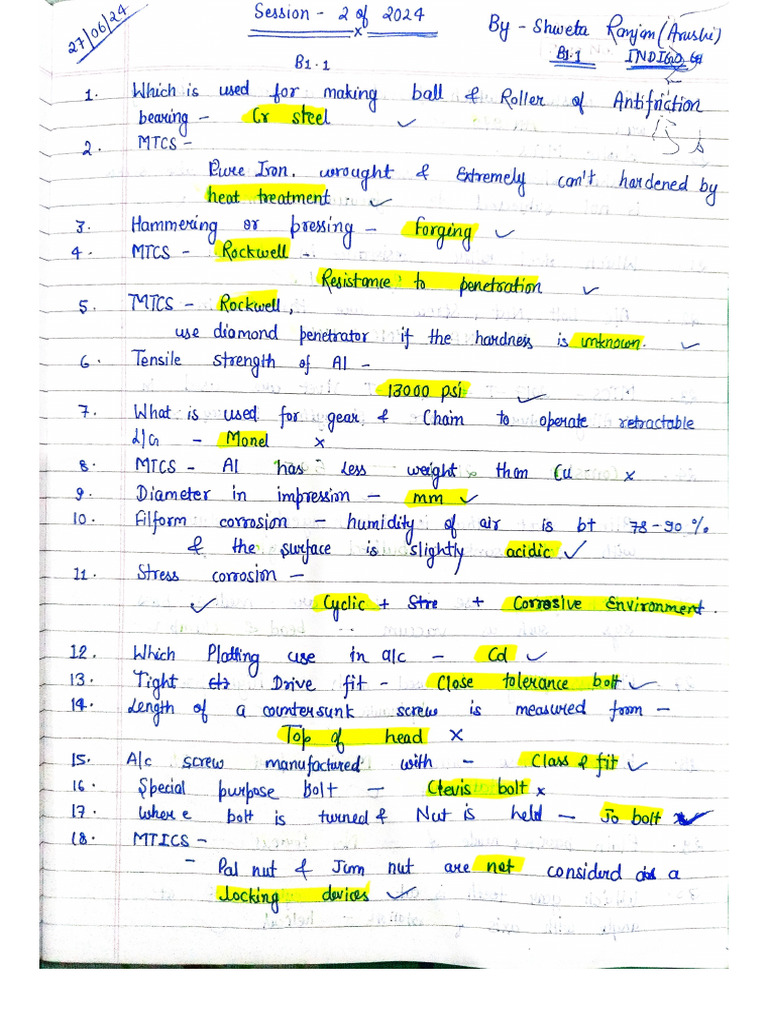 27/06/24
Session - 2 of 2024
By - Shweta Ranjan (Arushi)
B1.1 INDIGO
B1.1
1. Which is used for making ball & Roller of Antifriction
bearing - Cr steel ✓
2. MTCS -
Pure Iron, wrought & Extremely can't hardened by
heat treatment ✓
3. Hammering or pressing - forging ✓
4. MTCS - Rockwell -
Resistance to penetration ✓
5. MTCS - Rockwell,
use diamond penetrator if the hardness is unknown. ✓
6. Tensile strength of Al -
13000 psi ✓
7. What is used for gear & Chain to operate retractable
L/G - Monel x
8. MTCS - Al has less weight than Cu x
9. Diameter in impression - mm ✓
10. Filform corrosion - humidity of air is bt 78-90 %
& the surface is slightly acidic ✓
11. Stress corrosion -
✓ Cyclic + Stre + Corrosive Environment.
12. Which Platting use in a/c - Cd ✓
13. Tight Drive fit - Close tolerance bolt ✓
14. Length of a countersunk screw is measured from -
Top of head x
15. A/c screw manufactured with - Class & fit ✓
16. Special purpose bolt - Clevis bolt x
17. where bolt is turned & Nut is held - Jo bolt ✓
18. MTICS -
- Pal nut & Jam nut are not considerd as a
locking devices ✓